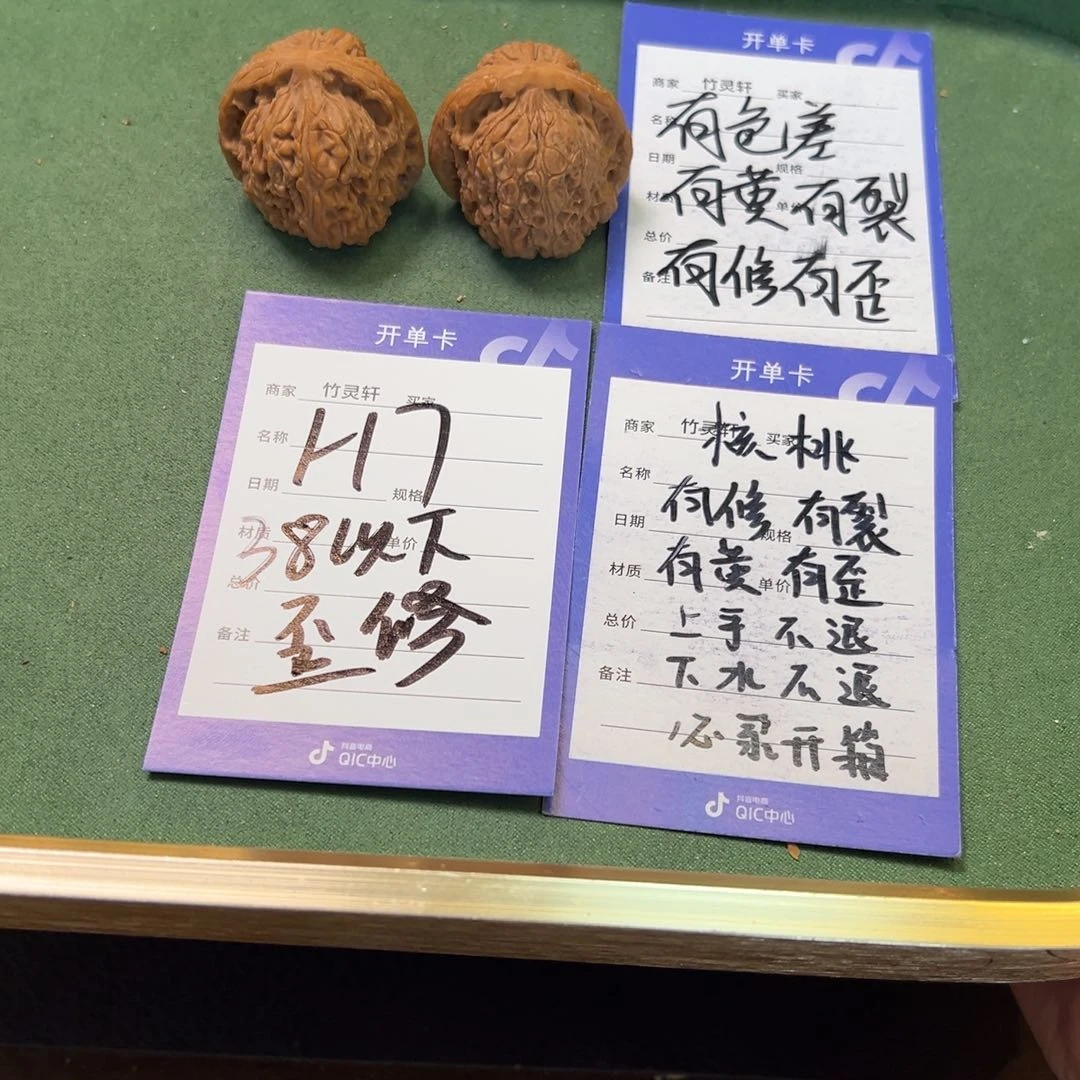 开单卡
商家 竹灵轩 买家
名称 有色差
日期 规格
材质 有黄有裂 单价
总价
备注 有修有歪
开单卡
商家 竹灵轩 买家
名称 H17
日期 规格
材质 38以下 单价
总价
备注 歪修
抖音电商
QIC中心
开单卡
商家 竹灵轩 买家
核桃
名称
有修 有裂
日期 规格
材质 有黄 单价 有歪
总价 上手不退
备注 下水不退
必录开箱
抖音电商
QIC中心